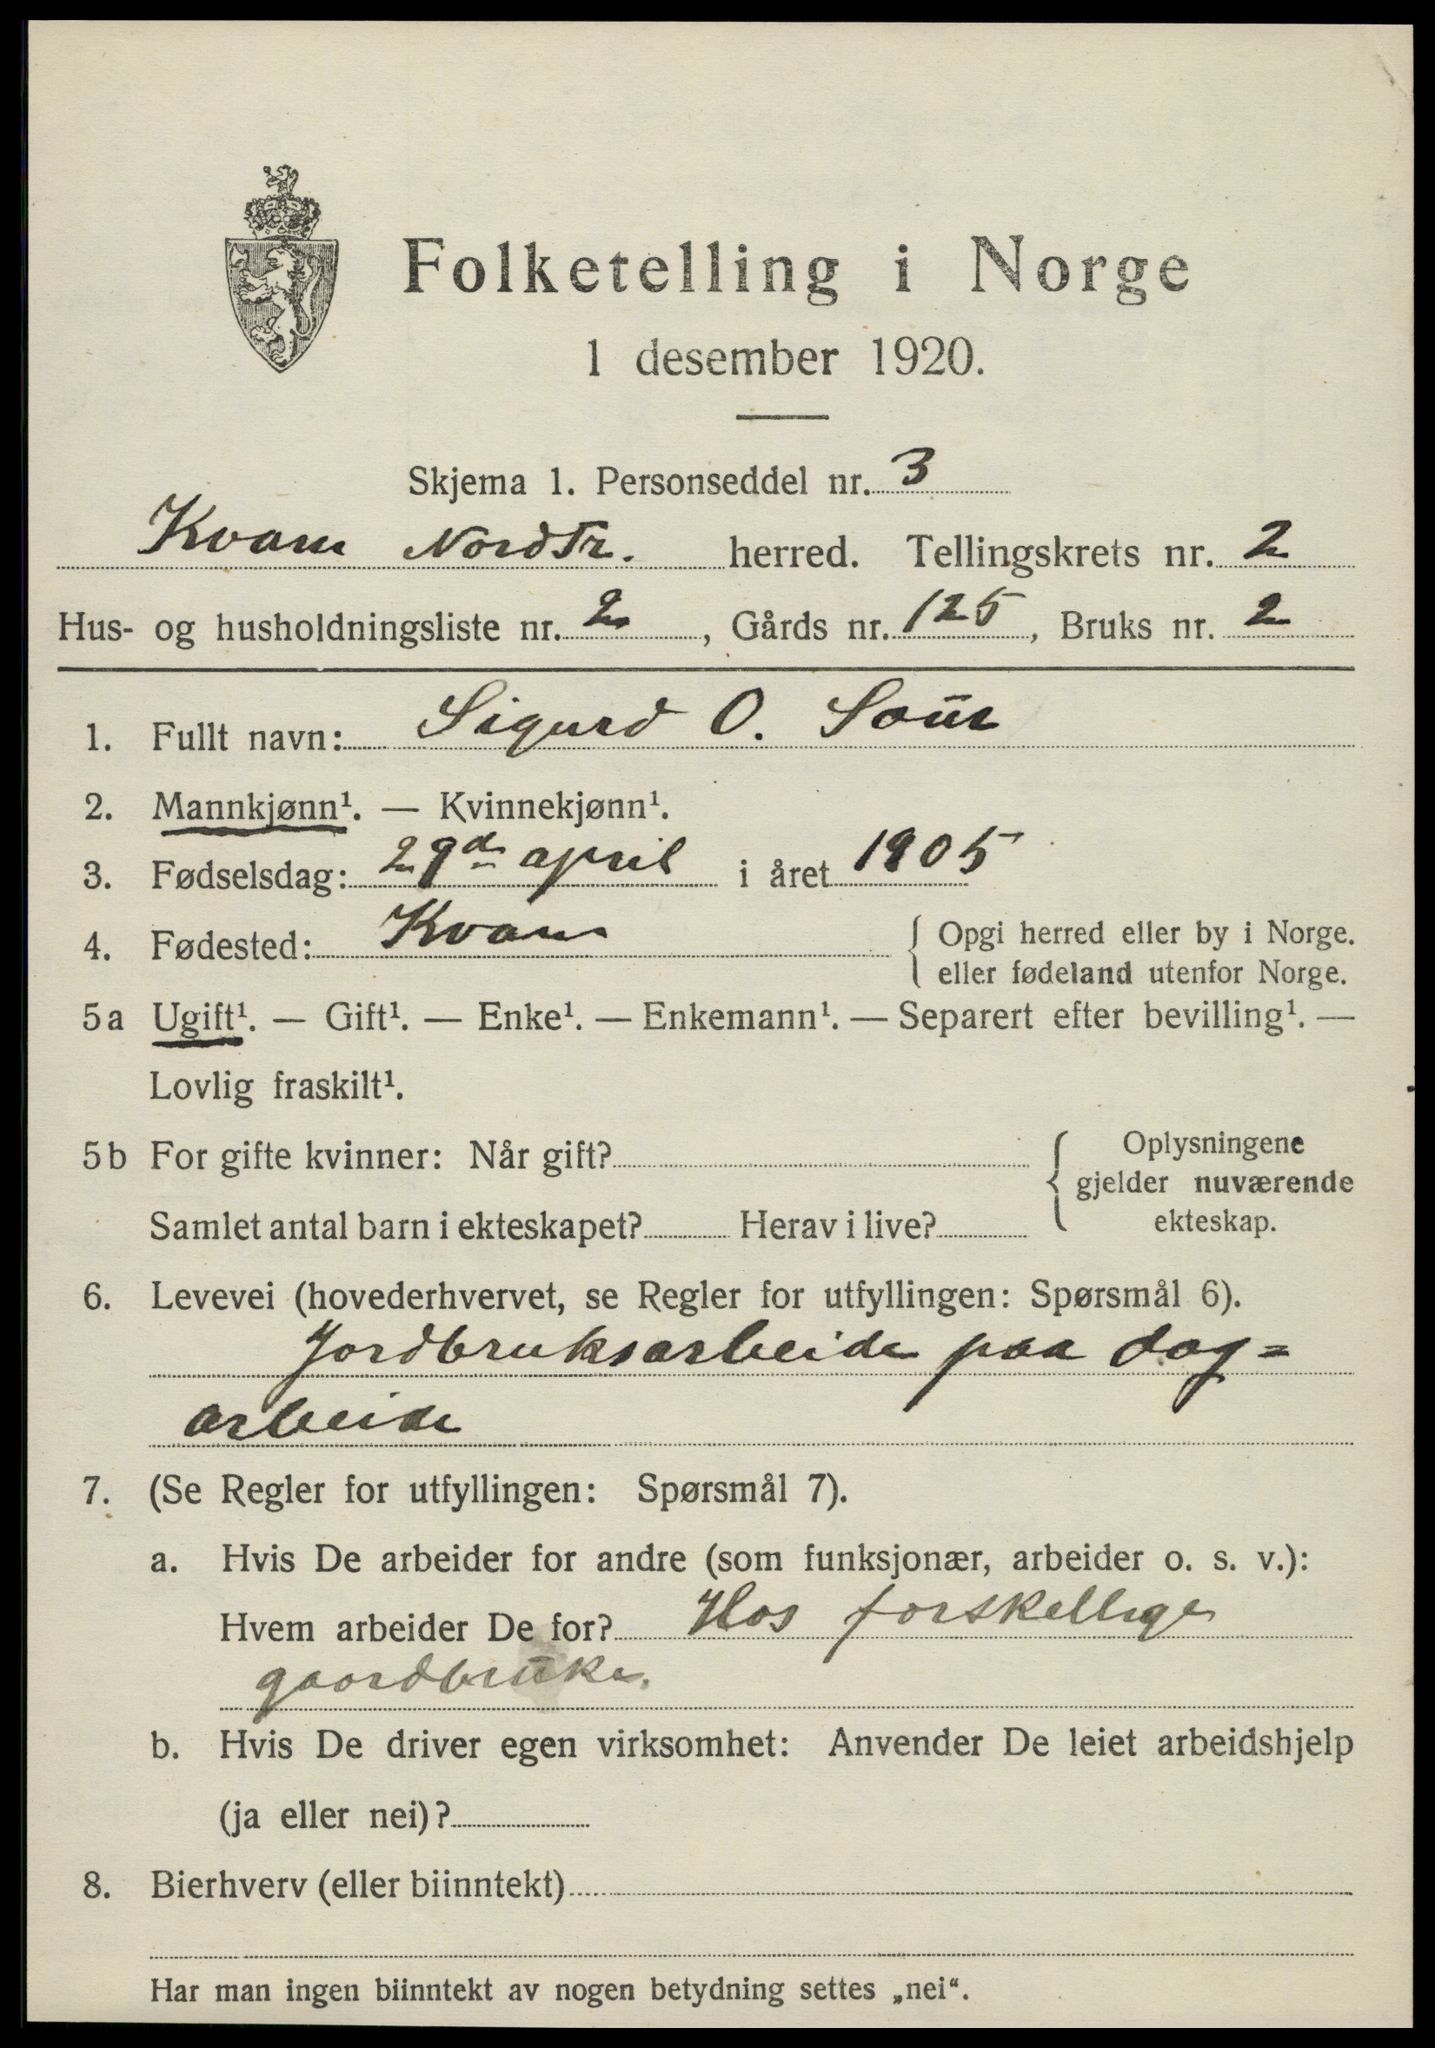 Folketelling i Norge
1 desember 1920.
Skjema 1. Personseddel nr. 3
Kvam Nordtr. herred. Tellingskrets nr. 2
Hus- og husholdningsliste nr. 2, Gårds nr. 125, Bruks nr. 2
1. Fullt navn: Sigurd O.
2. Mannkjønn¹. — Kvinnekjønn¹.
3. Fødselsdag: 29de april i året 1905
4. Fødested: Kvam { Opgi herred eller by i Norge.
eller fødeland utenfor Norge.
5a Ugift¹. — Gift¹. — Enke¹. — Enkemann¹. — Separert efter bevilling¹. —
Lovlig fraskilt¹.
5b For gifte kvinner: Når gift?
Samlet antal barn i ekteskapet? Herav i live?
{ Oplysningene
gjelder nuværende
ekteskap.
6. Levevei (hovederhvervet, se Regler for utfyllingen: Spørsmål 6).
Jordbruksarbeide paa dag=
arbeide
7. (Se Regler for utfyllingen: Spørsmål 7).
a. Hvis De arbeider for andre (som funksjonær, arbeider o. s. v.):
Hvem arbeider De for? Hos forskellige
gaardbruke.
b. Hvis De driver egen virksomhet: Anvender De leiet arbeidshjelp
(ja eller nei)?
8. Bierhverv (eller biinntekt)
Har man ingen biinntekt av nogen betydning settes „nei“.